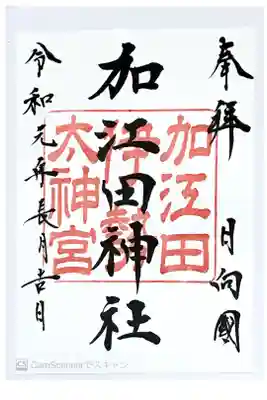 奉拝
日向國
加江田神社
加江田
伊勢
太神宮
令和元年長月吉日
CS CamScannerでスキャン